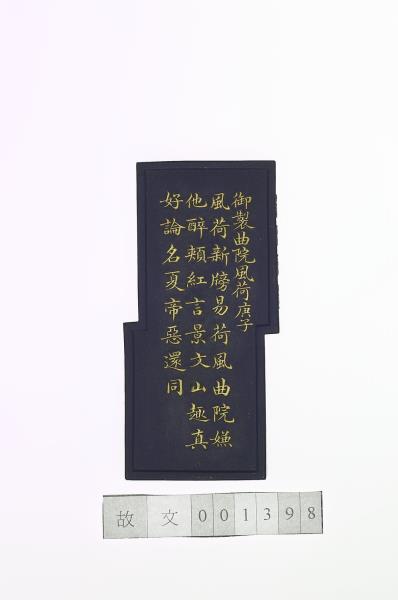 御製曲院風荷庚子
風荷新牓易荷風曲院嫌
他醉頰紅言景文山趣真
好論名夏帝惡還同
故文001398